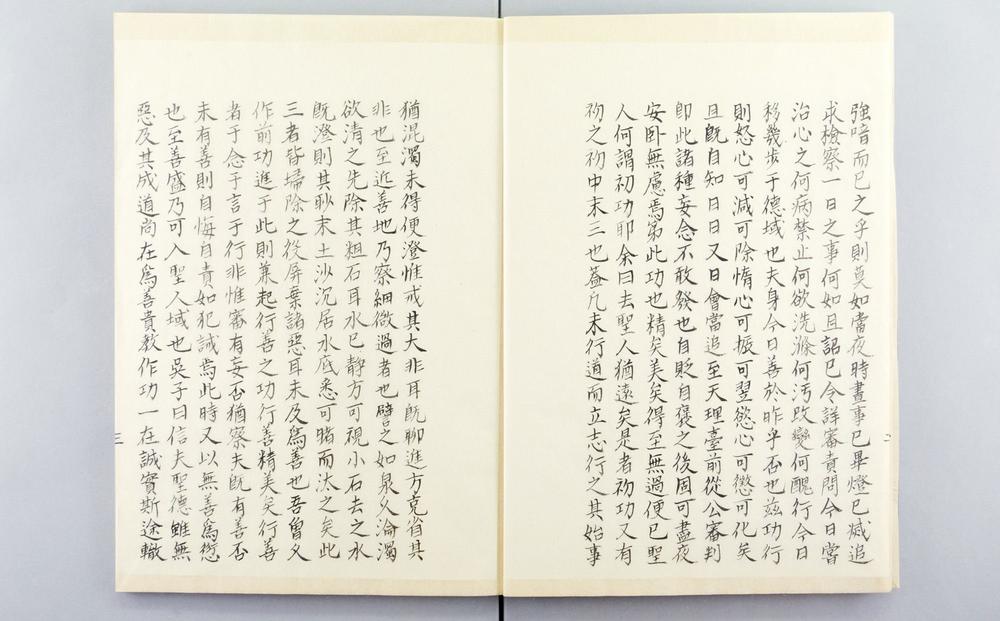 強喑而已之乎則莫如當夜時晝事已畢燈已滅追
求檢察一日之事何如且詔已令詳審責問今日嘗
治心之何病禁止何欲洗滌何汚改變何醜行今日
移幾步于德域也夫身今日善於昨乎否也兹功行
則怒心可減可除惰心可振可翌慾心可懲可化矣
且旣自知日日又日會當追至天理臺前從公審判
卽此諸種妄念不敢發也自貶自褒之後固可盡夜
安卧無慮焉第此功也精矣美矣得至無過便已聖
人何謂初功耶余曰去聖人猶遠矣是者初功又有
初之初中末三也葢凡未行道而立志行之其始事
猶混濁未得便澄惟戒其大非耳旣聊進方克省其
非也至近善地乃察細微過者也譬之如泉久淪濁
欲清之先除其粗石耳水已靜方可視小石去之水
旣澄則其眇末土沙沉居水底悉可睹而汰之矣此
三者皆埽除之役屏棄諸惡耳未及爲善也吾曾久
作前功進于此則兼起行善之功行善精美矣行善
者于念于言于行非惟審有妄否猶察夫旣有善否
未有善則自悔自責如犯誡焉此時又以無善爲愆
也至善盛乃可入聖人域也吳子曰信夫聖德雖無
惡及其成道尚在爲善貴教作功一在誠實斯途轍
三